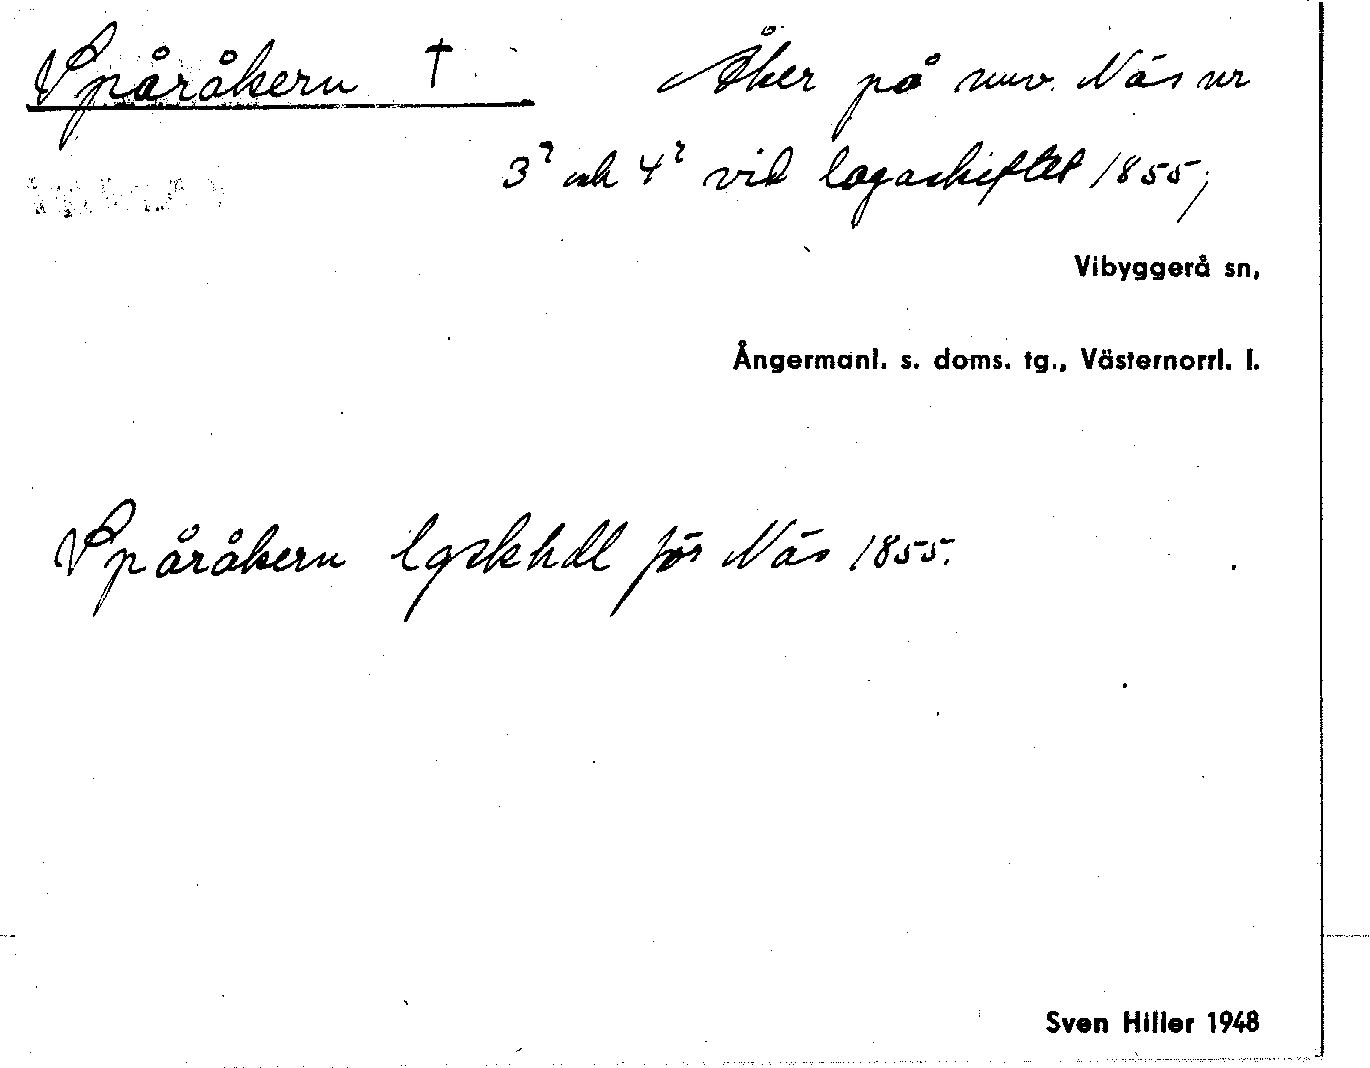 Spåråkern † Åker på nuv. Näs nr
3² och 4² vid lagaskiftet 1855;
Vibyggerå sn,
Ångermanl. s. doms. tg., Västernorrl. l.
Spåråkern lgskhdl för Näs 1855.
Sven Hiller 1948